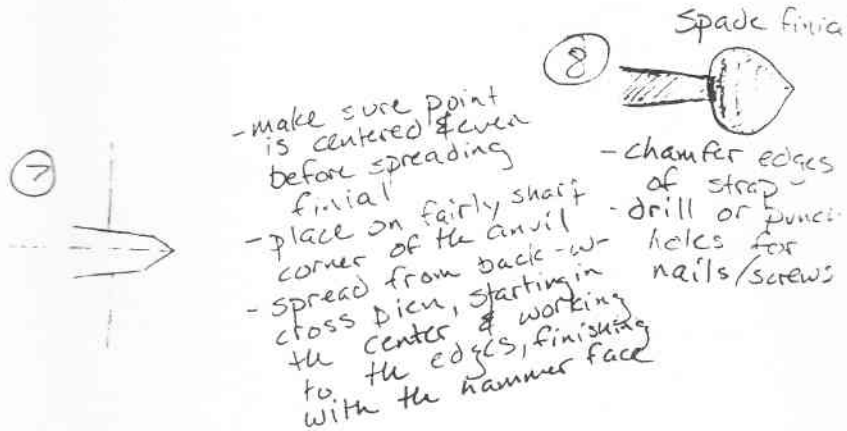 7
- make sure point
is centered & even
before spreading
finial
- place on fairly sharp
corner of the anvil
- spread from back -w-
cross pien, starting in
the center & working
to the edges, finishing
with the hammer face
8
Spade finia
- chamfer edges
of strap -
- drill or punc
holes for
nails/screws